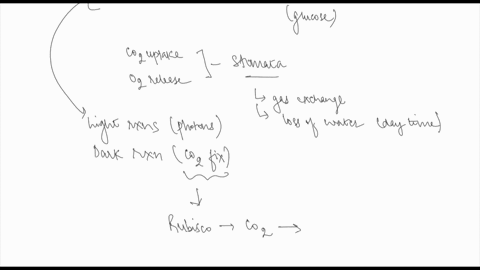 (glucose)
CO2 uptake
O2 release ] - stomata
↳ gas exchange
↳ loss of water (day time)
Light rxns (photons)
Dark rxn (CO2 fix)
↓
Rubisco → CO2 →